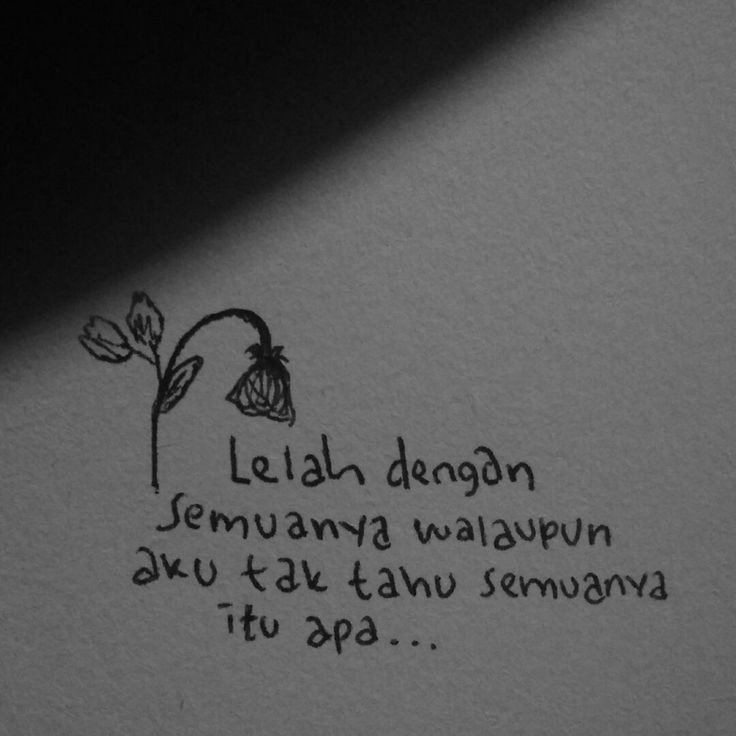 Lelah dengan
semuanya walaupun
aku tak tahu semuanya
itu apa...